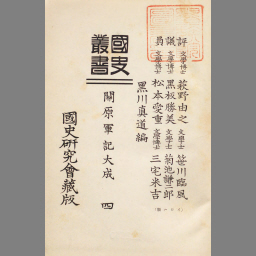 評議員
文學博士 萩野由之 文學士 笹川臨風
文學博士 黑板勝美 文學士 菊池謙二郎
文學博士 松本愛重 文學博士 三宅米吉
黑川真道編
國史叢書
關原軍記大成 四
國史研究會藏版